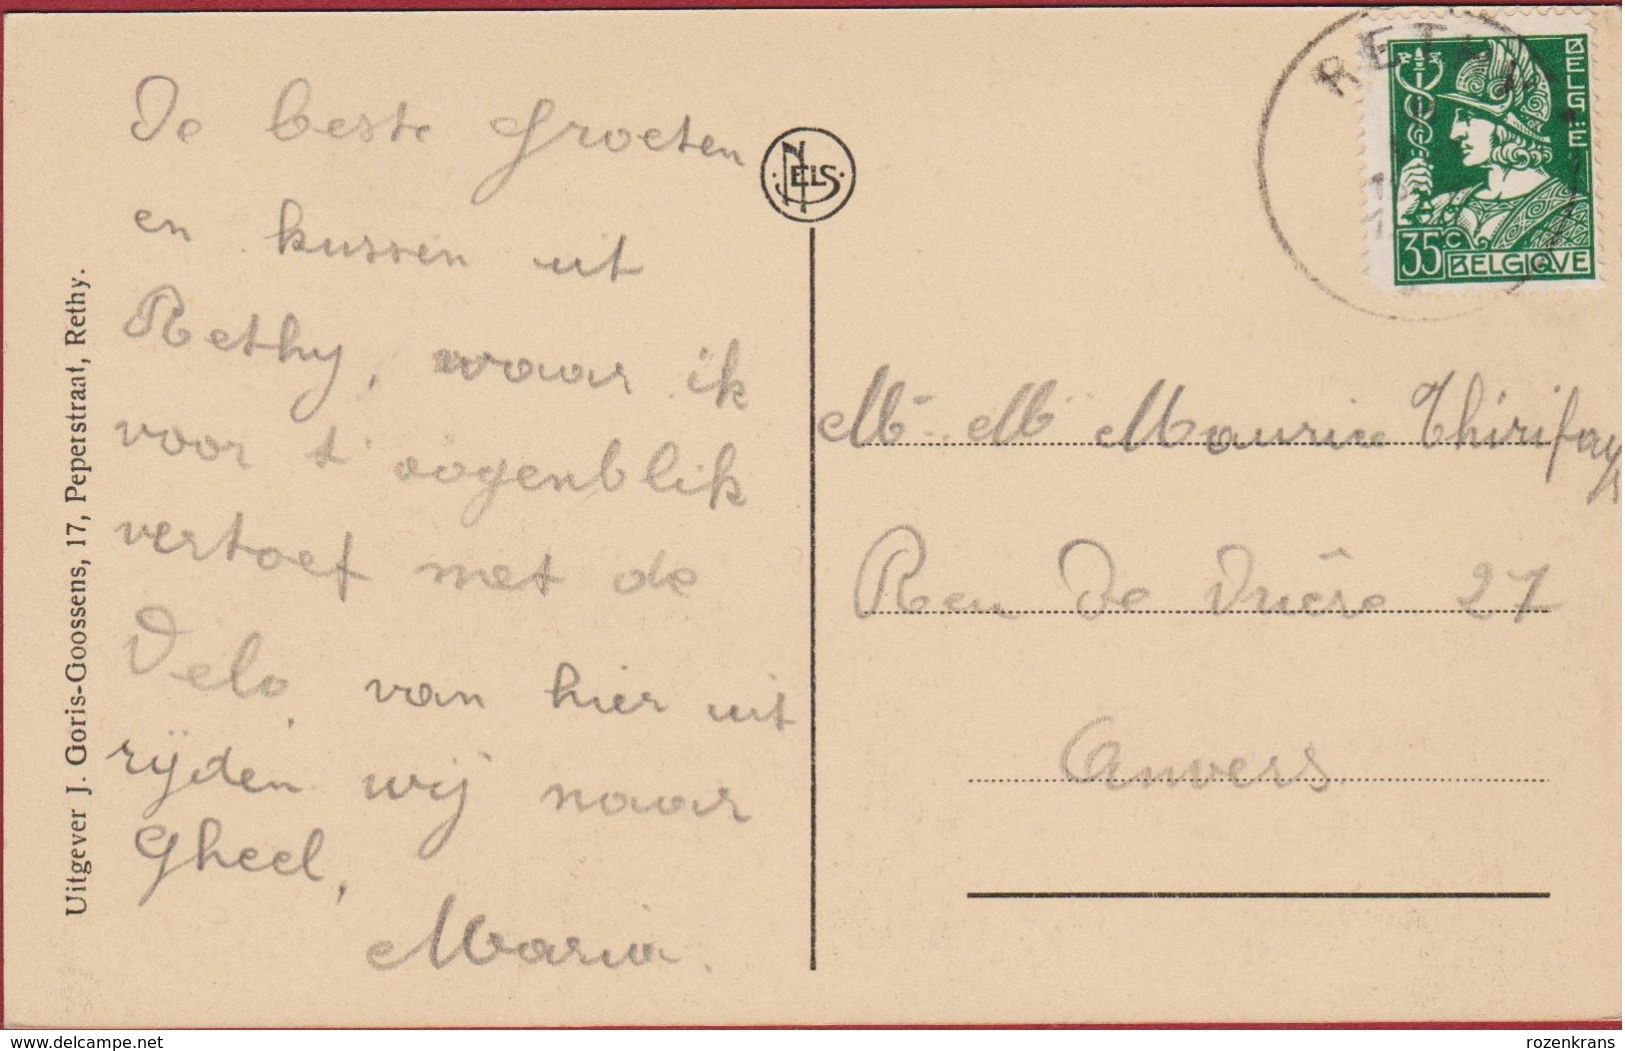 De beste Groeten
en kussen uit
Rethy, waar ik
voor t' oogenblik
vertoef met de
Velo, van hier uit
rijden wij naar
Gheel,
Maria.
Uitgever J. Goris-Goossens, 17, Peperstraat, Rethy.
NELS
BELGIË
35c BELGIQVE
Mr Mme Maurice Thirifays
Reu De Vrière 27
Anvers
delcampe.net
rozenkrans